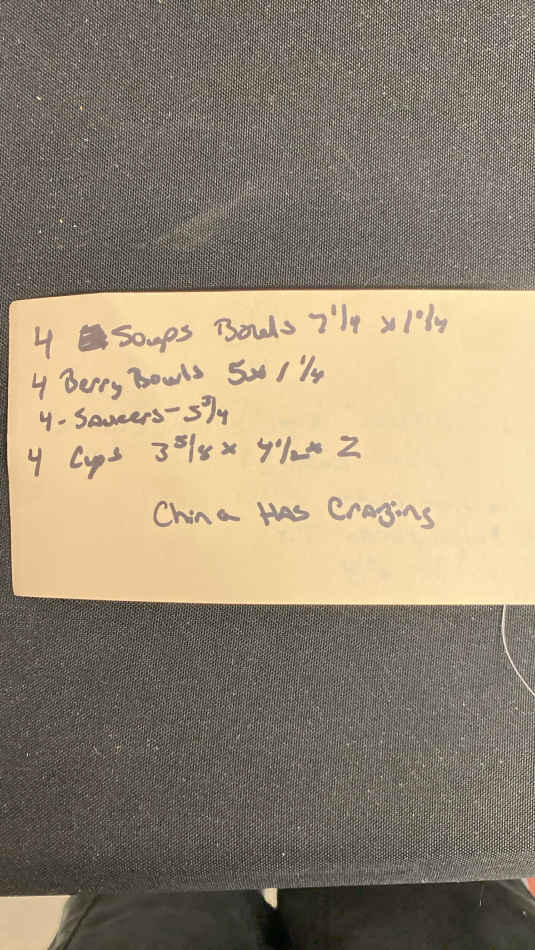 4 Soups Bowls 7 1/4 x 1 1/4
4 Berry Bowls 5x 1 1/4
4- Saucers- 5 3/4
4 Cups 3 5/8 x 4 1/2 x 2
China HAS Crazing